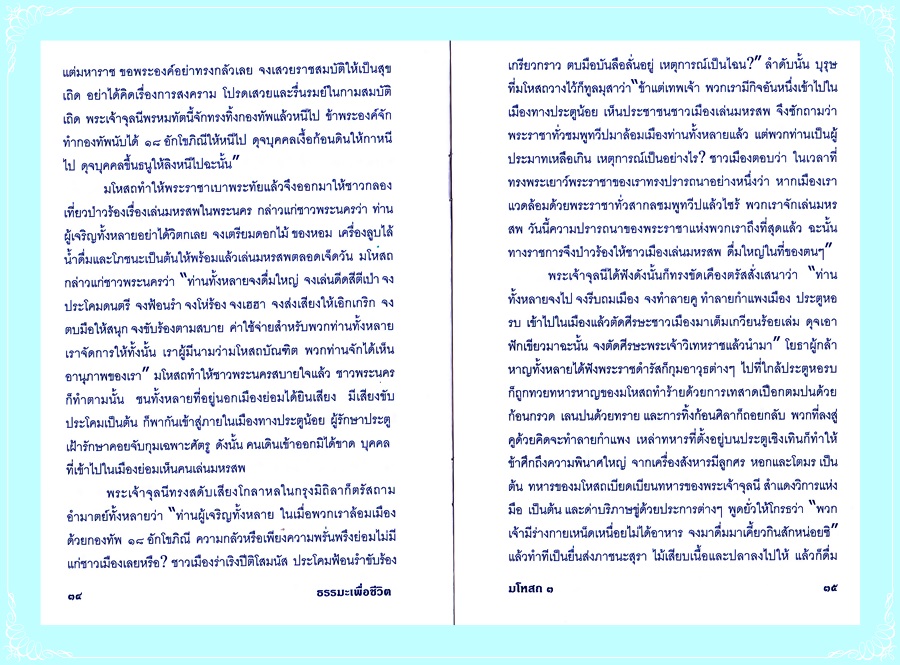 แต่มหาราช ขอพระองค์อย่าทรงกลัวเลย จงเสวยราชสมบัติให้เป็นสุข
เถิด อย่าได้คิดเรื่องการสงคราม โปรดเสวยและรื่นรมย์ในกามสมบัติ
เถิด พระเจ้าจุลนีพรหมทัตนี้จักทรงทิ้งกองทัพแล้วหนีไป ข้าพระองค์จัก
ทำกองทัพนับได้ ๑๘ อักโขภิณีให้หนีไป ดุจบุคคลเงื้อก้อนดินให้กาหนี
ไป ดุจบุคคลขึ้นธนูให้ลิงหนีไปฉะนั้น”
มโหสถทำให้พระราชาเบาพระทัยแล้วจึงออกมาให้ชาวกลอง
เที่ยวป่าวร้องเรื่องเล่นมหรสพในพระนคร กล่าวแก่ชาวพระนครว่า ท่าน
ผู้เจริญทั้งหลายอย่าได้วิตกเลย จงเตรียมดอกไม้ ของหอม เครื่องลูบไล้
น้ำดื่มและโภชนะเป็นต้นให้พร้อมแล้วเล่นมหรสพตลอดเจ็ดวัน มโหสถ
กล่าวแก่ชาวพระนครว่า “ท่านทั้งหลายจงดื่มใหญ่ จงเล่นดีดสีตีเป่า จง
ประโคมดนตรี จงฟ้อนรำ จงโห่ร้อง จงเฮฮา จงส่งเสียงให้เอิกเกริก จง
ตบมือให้สนุก จงขับร้องตามสบาย ค่าใช้จ่ายสำหรับพวกท่านทั้งหลาย
เราจัดการให้ทั้งนั้น เราผู้มีนามว่ามโหสถบัณฑิต พวกท่านจักได้เห็น
อานุภาพของเรา” มโหสถทำให้ชาวพระนครสบายใจแล้ว ชาวพระนคร
ก็ทำตามนั้น ชนทั้งหลายที่อยู่นอกเมืองย่อมได้ยินเสียง มีเสียงขับ
ประโคมเป็นต้น ก็พากันเข้าสู่ภายในเมืองทางประตูน้อย ผู้รักษาประตู
เฝ้ารักษาคอยจับกุมเฉพาะศัตรู ดังนั้น คนเดินเข้าออกมิได้ขาด บุคคล
ที่เข้าไปในเมืองย่อมเห็นคนเล่นมหรสพ
พระเจ้าจุลนีทรงสดับเสียงโกลาหลในกรุงมิถิลาก็ตรัสถาม
อำมาตย์ทั้งหลายว่า “ท่านผู้เจริญทั้งหลาย ในเมื่อพวกเราล้อมเมือง
ด้วยกองทัพ ๑๘ อักโขภิณี ความกลัวหรือเพียงความพรั่นพรึงย่อมไม่มี
แก่ชาวเมืองเลยหรือ? ชาวเมืองร่าเริงปีติโสมนัส ประโคมฟ้อนรำขับร้อง
๑๔ ธรรมะเพื่อชีวิต
เกรียวกราว ตบมือบันลือลั่นอยู่ เหตุการณ์เป็นไฉน?” ลำดับนั้น บุรุษ
ที่มโหสถวางไว้ก็ทูลมุสาว่า “ข้าแต่เทพเจ้า พวกเรามีกิจอันหนึ่งเข้าไปใน
เมืองทางประตูน้อย เห็นประชาชนชาวเมืองเล่นมหรสพ จึงซักถามว่า
พระราชาทั่วชมพูทวีปมาล้อมเมืองท่านทั้งหลายแล้ว แต่พวกท่านเป็นผู้
ประมาทเหลือเกิน เหตุการณ์เป็นอย่างไร? ชาวเมืองตอบว่า ในเวลาที่
ทรงพระเยาว์พระราชาของเราทรงปรารถนาอย่างหนึ่งว่า หากเมืองเรา
แวดล้อมด้วยพระราชาทั่วสากลชมพูทวีปแล้วไซร้ พวกเราจักเล่นมหร
สพ วันนี้ความปรารถนาของพระราชาแห่งพวกเราถึงที่สุดแล้ว ฉะนั้น
ทางราชการจึงป่าวร้องให้ชาวเมืองเล่นมหรสพ ดื่มใหญ่ในที่ของตนๆ”
พระเจ้าจุลนีได้ฟังดังนั้นก็ทรงขัดเคืองตรัสสั่งเสนาว่า “ท่าน
ทั้งหลายจงไป จงรีบถมเมือง จงทำลายคู ทำลายกำแพงเมือง ประตูหอ
รบ เข้าไปในเมืองแล้วตัดศีรษะชาวเมืองมาเต็มเกวียนร้อยเล่ม ดุจเอา
ฟักเขียวมาฉะนั้น จงตัดศีรษะพระเจ้าวิเทหราชแล้วนำมา” โยธาผู้กล้า
หาญทั้งหลายได้ฟังพระราชดำรัสก็กุมอาวุธต่างๆ ไปที่ใกล้ประตูหอรบ
ก็ถูกทวยทหารหาญของมโหสถทำร้ายด้วยการเทสาดเปือกตมปนด้วย
ก้อนกรวด เลนปนด้วยทราย และการทิ้งก้อนศิลาก็ถอยกลับ พวกที่ลงสู่
คูด้วยคิดจะทำลายกำแพง เหล่าทหารที่ตั้งอยู่บนประตูเชิงเทินก็ทำให้
ข้าศึกถึงความพินาศใหญ่ จากเครื่องสังหารมีลูกศร หอกและโตมร เป็น
ต้น ทหารของมโหสถเบียดเบียนทหารของพระเจ้าจุลนี สำแดงวิการแห่ง
มือ เป็นต้น และด่าบริภาษขู่ด้วยประการต่างๆ พูดยั่วให้โกรธว่า “พวก
เจ้ามีร่างกายเหน็ดเหนื่อยไม่ได้อาหาร จงมาดื่มมาเคี้ยวกินสักหน่อยซิ”
แล้วทำทีเป็นยื่นส่งภาชนะสุรา ไม้เสียบเนื้อและปลาลงไปให้ แล้วก็ดื่ม
มโหสถ ๑ ๑๕